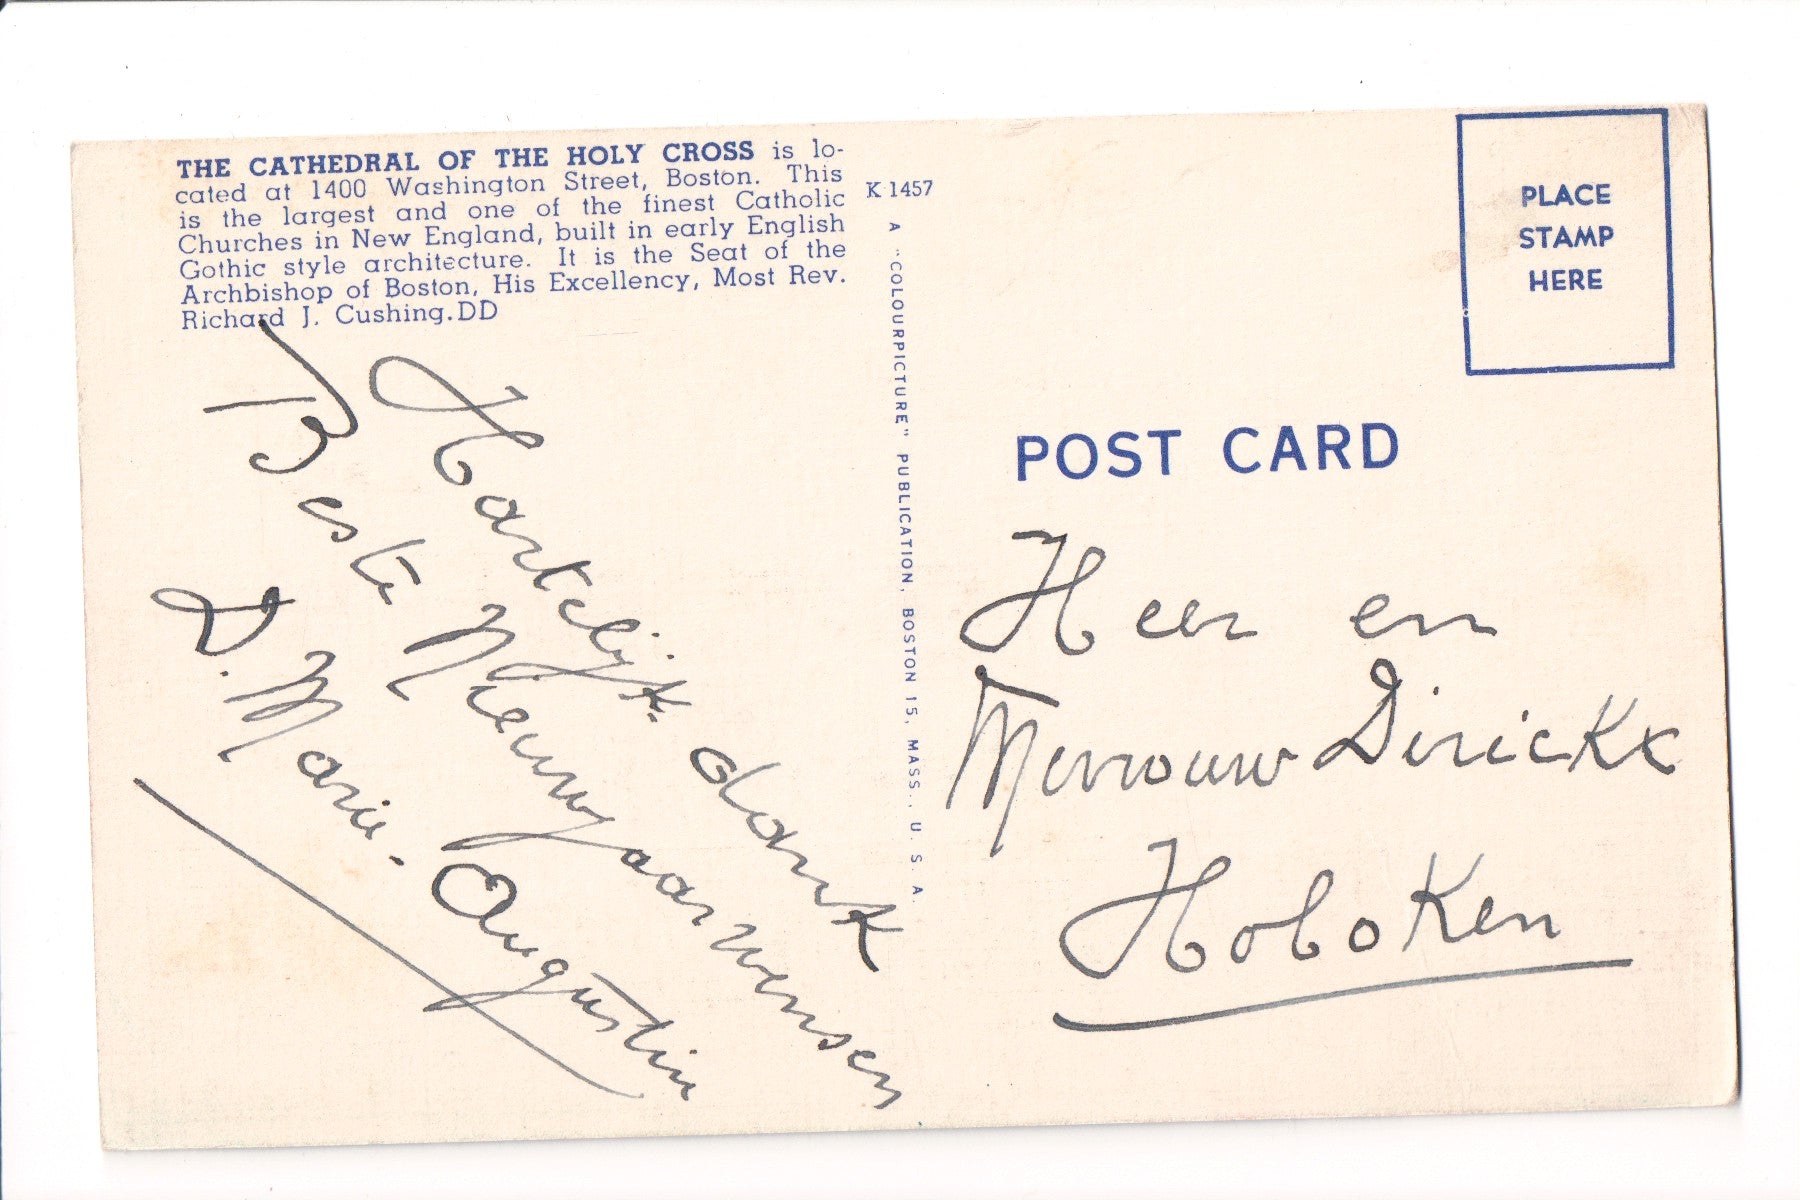 THE CATHEDRAL OF THE HOLY CROSS is lo-
cated at 1400 Washington Street, Boston. This
is the largest and one of the finest Catholic
Churches in New England, built in early English
Gothic style architecture. It is the Seat of the
Archbishop of Boston, His Excellency, Most Rev.
Richard J. Cushing.DD
K 1457
A "COLOURPICTURE" PUBLICATION, BOSTON 15, MASS., U. S. A.
PLACE
STAMP
HERE
POST CARD
Hartelijk dank
Beste Nieuwjaarwensen
D. Marie-Augustin
Heer en
Mevrouw Dirickx
Hoboken